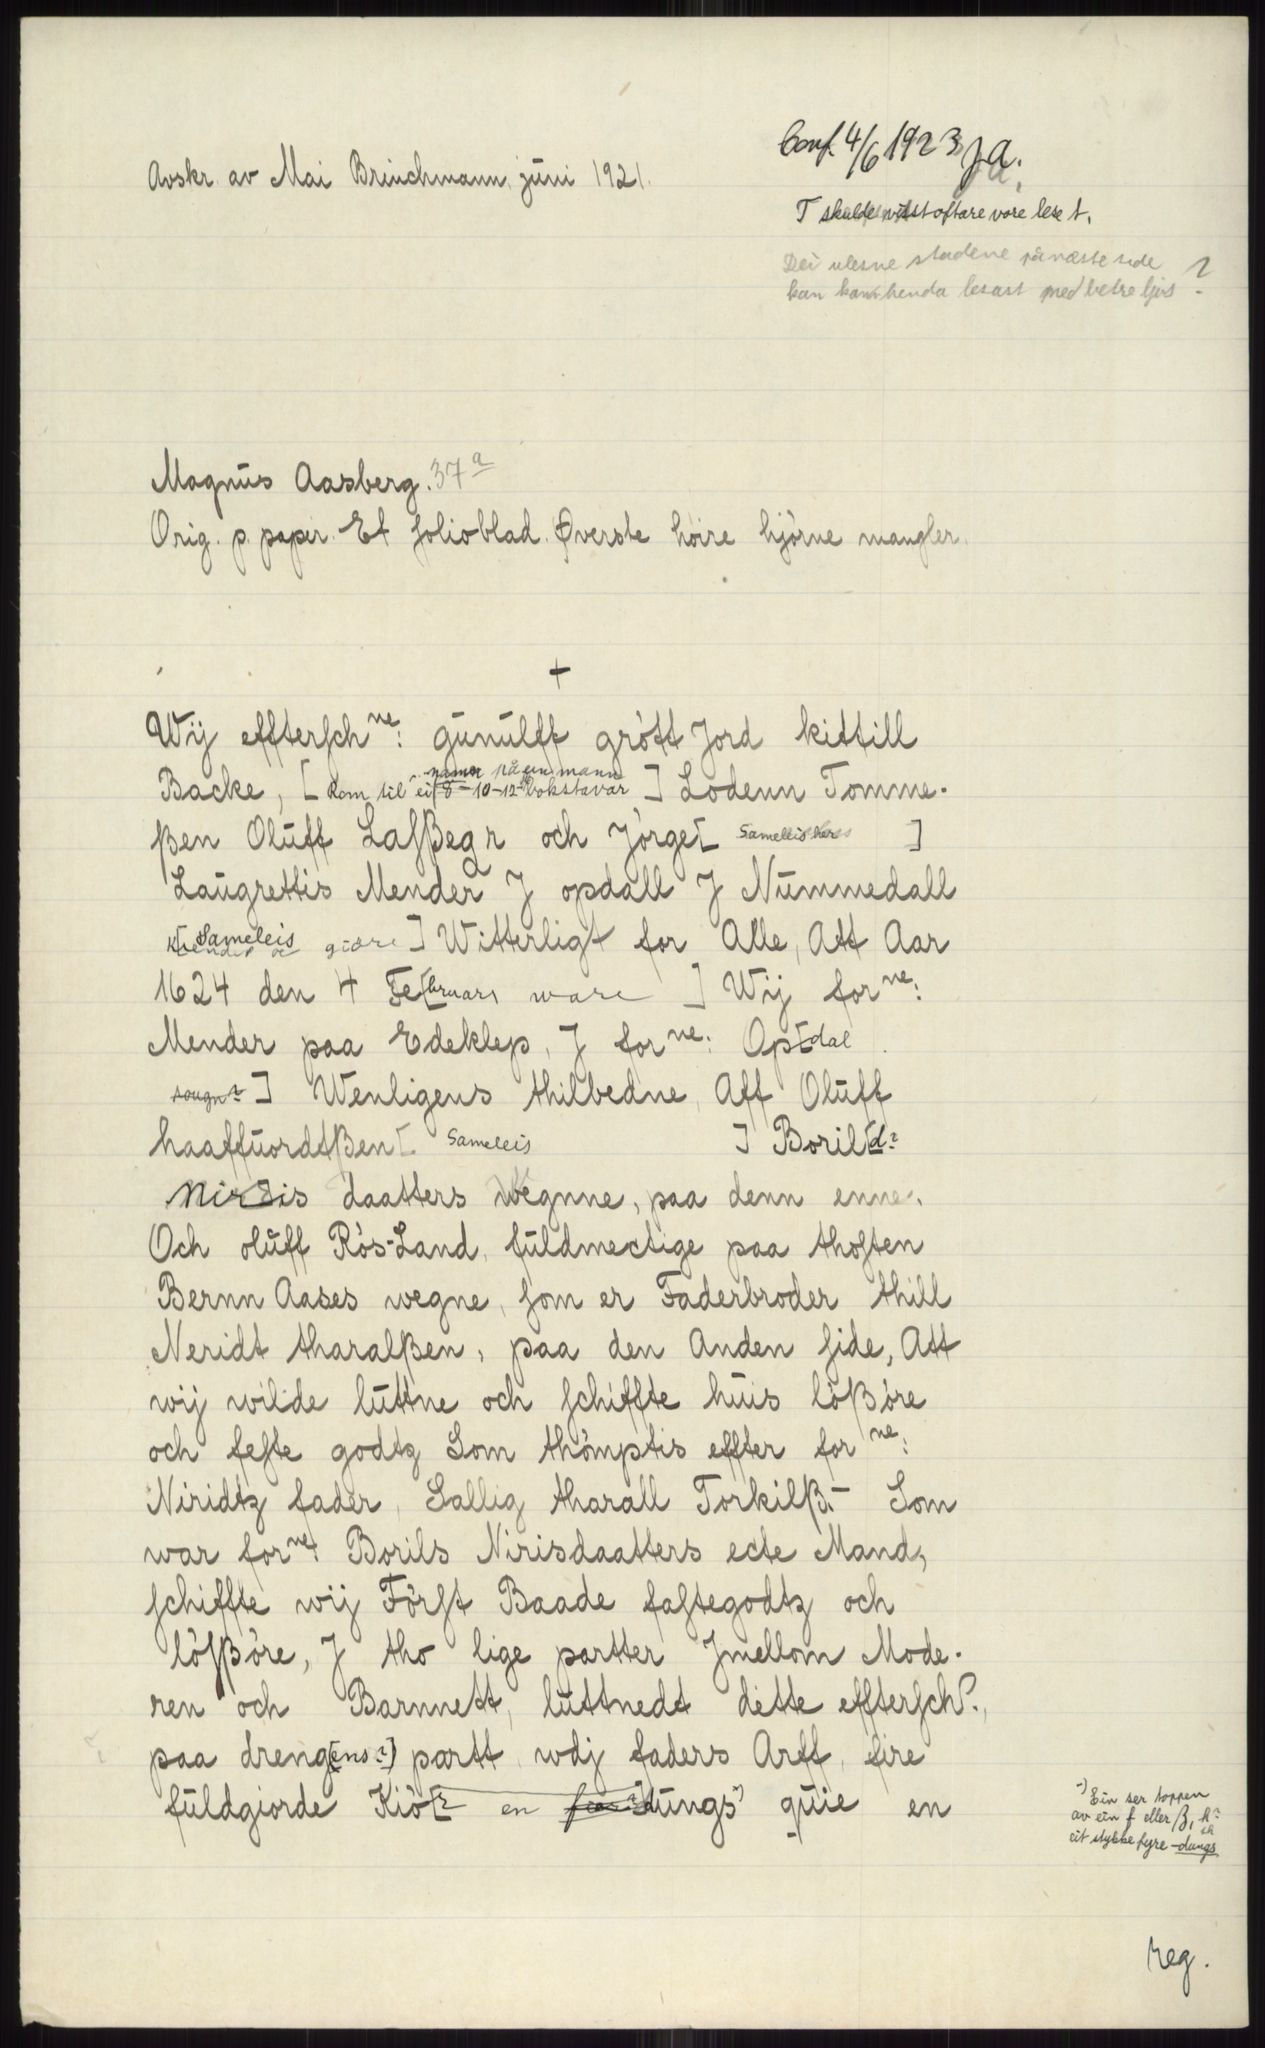 Conf. 4/6 1923 JA.
Avskr. av Mai Brinchmann, juni 1921.
T skulde visst oftare vore lese t.
Dei ulesne stadene på næste side
kan kannhenda lesast med betre ljos ?
Magnus Aasberg. 37a
Orig. p. papir. Et folioblad. Øverste høire hjørne mangler.
+
Wij effterschne: gunulff grött Jord kittill
Backe, [ Rom til ei 8-10-12 bokstavar namn på ein mann ] Lodenn Tomme-
ßen Oluff Lasßegr och Jörge [ Sameleis her ]
Laugrettis Mender J opdall J Nummedall
[ Sameleis Kiender oc giöre ] Witterligt for Alle, Att Aar
1624 den 4 Fe[bruari ware ] Wij forne:
Mender paa Edeklep, J forne: Op[dal
sougn? ] Wenligens thilbedne, Aff Oluff
haaffuordtßen [ Sameleis ] Boril[d?
Nirsis daatters wegnne, paa denn enne,
Och oluff Rös-Land, fuldmectige paa thosten
Bernn Aases wegne, som er Faderbroder thill
Neridt tharalßen, paa den Anden side, Att
wij wilde luttne och schiffte huis lößöre
och feste godtz Som thömptis effter forne:
Niridtz fader, Sallig tharall Torkilß.- Som
war forne: Borils Nirisdaatters ecte Mand,
schiffte wij Först Baade fastegodtz och
lösßöre, J tho lige partter Jmellom Mode-
ren och Barnnett, luttnedt dette efftersch?.,
paa dreng[ens?] partt, wdj faders Arff, fire
fuldgiorde Kiö[? en dungs*) quie en
*) Ein ser toppen
av ein f eller ß, k?
eit stykke fyre -dungs
reg.